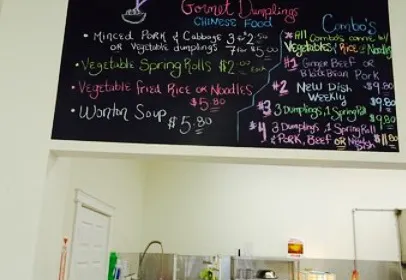 Gormet Dumplings
CHINESE FOOD
• Minced Pork & Cabbage 3 for $2.50
or Vegetable dumplings 7 for $5.00
• Vegetable Spring Rolls $2.00 each
• Vegetable fried Rice or Noodles
$5.80
• Wonton Soup $5.80
Combo's
* All Combo's come w/
Vegetables, Rice or Noodles
#1 Ginger Beef or
Black Bean Pork $9.80
#2 New Dish
Weekly $9.80
#3 3 Dumplings, 1 Spring Roll
$9.80
#4 3 Dumplings, 1 Spring Roll
& Pork, Beef OR New Dish $11.80